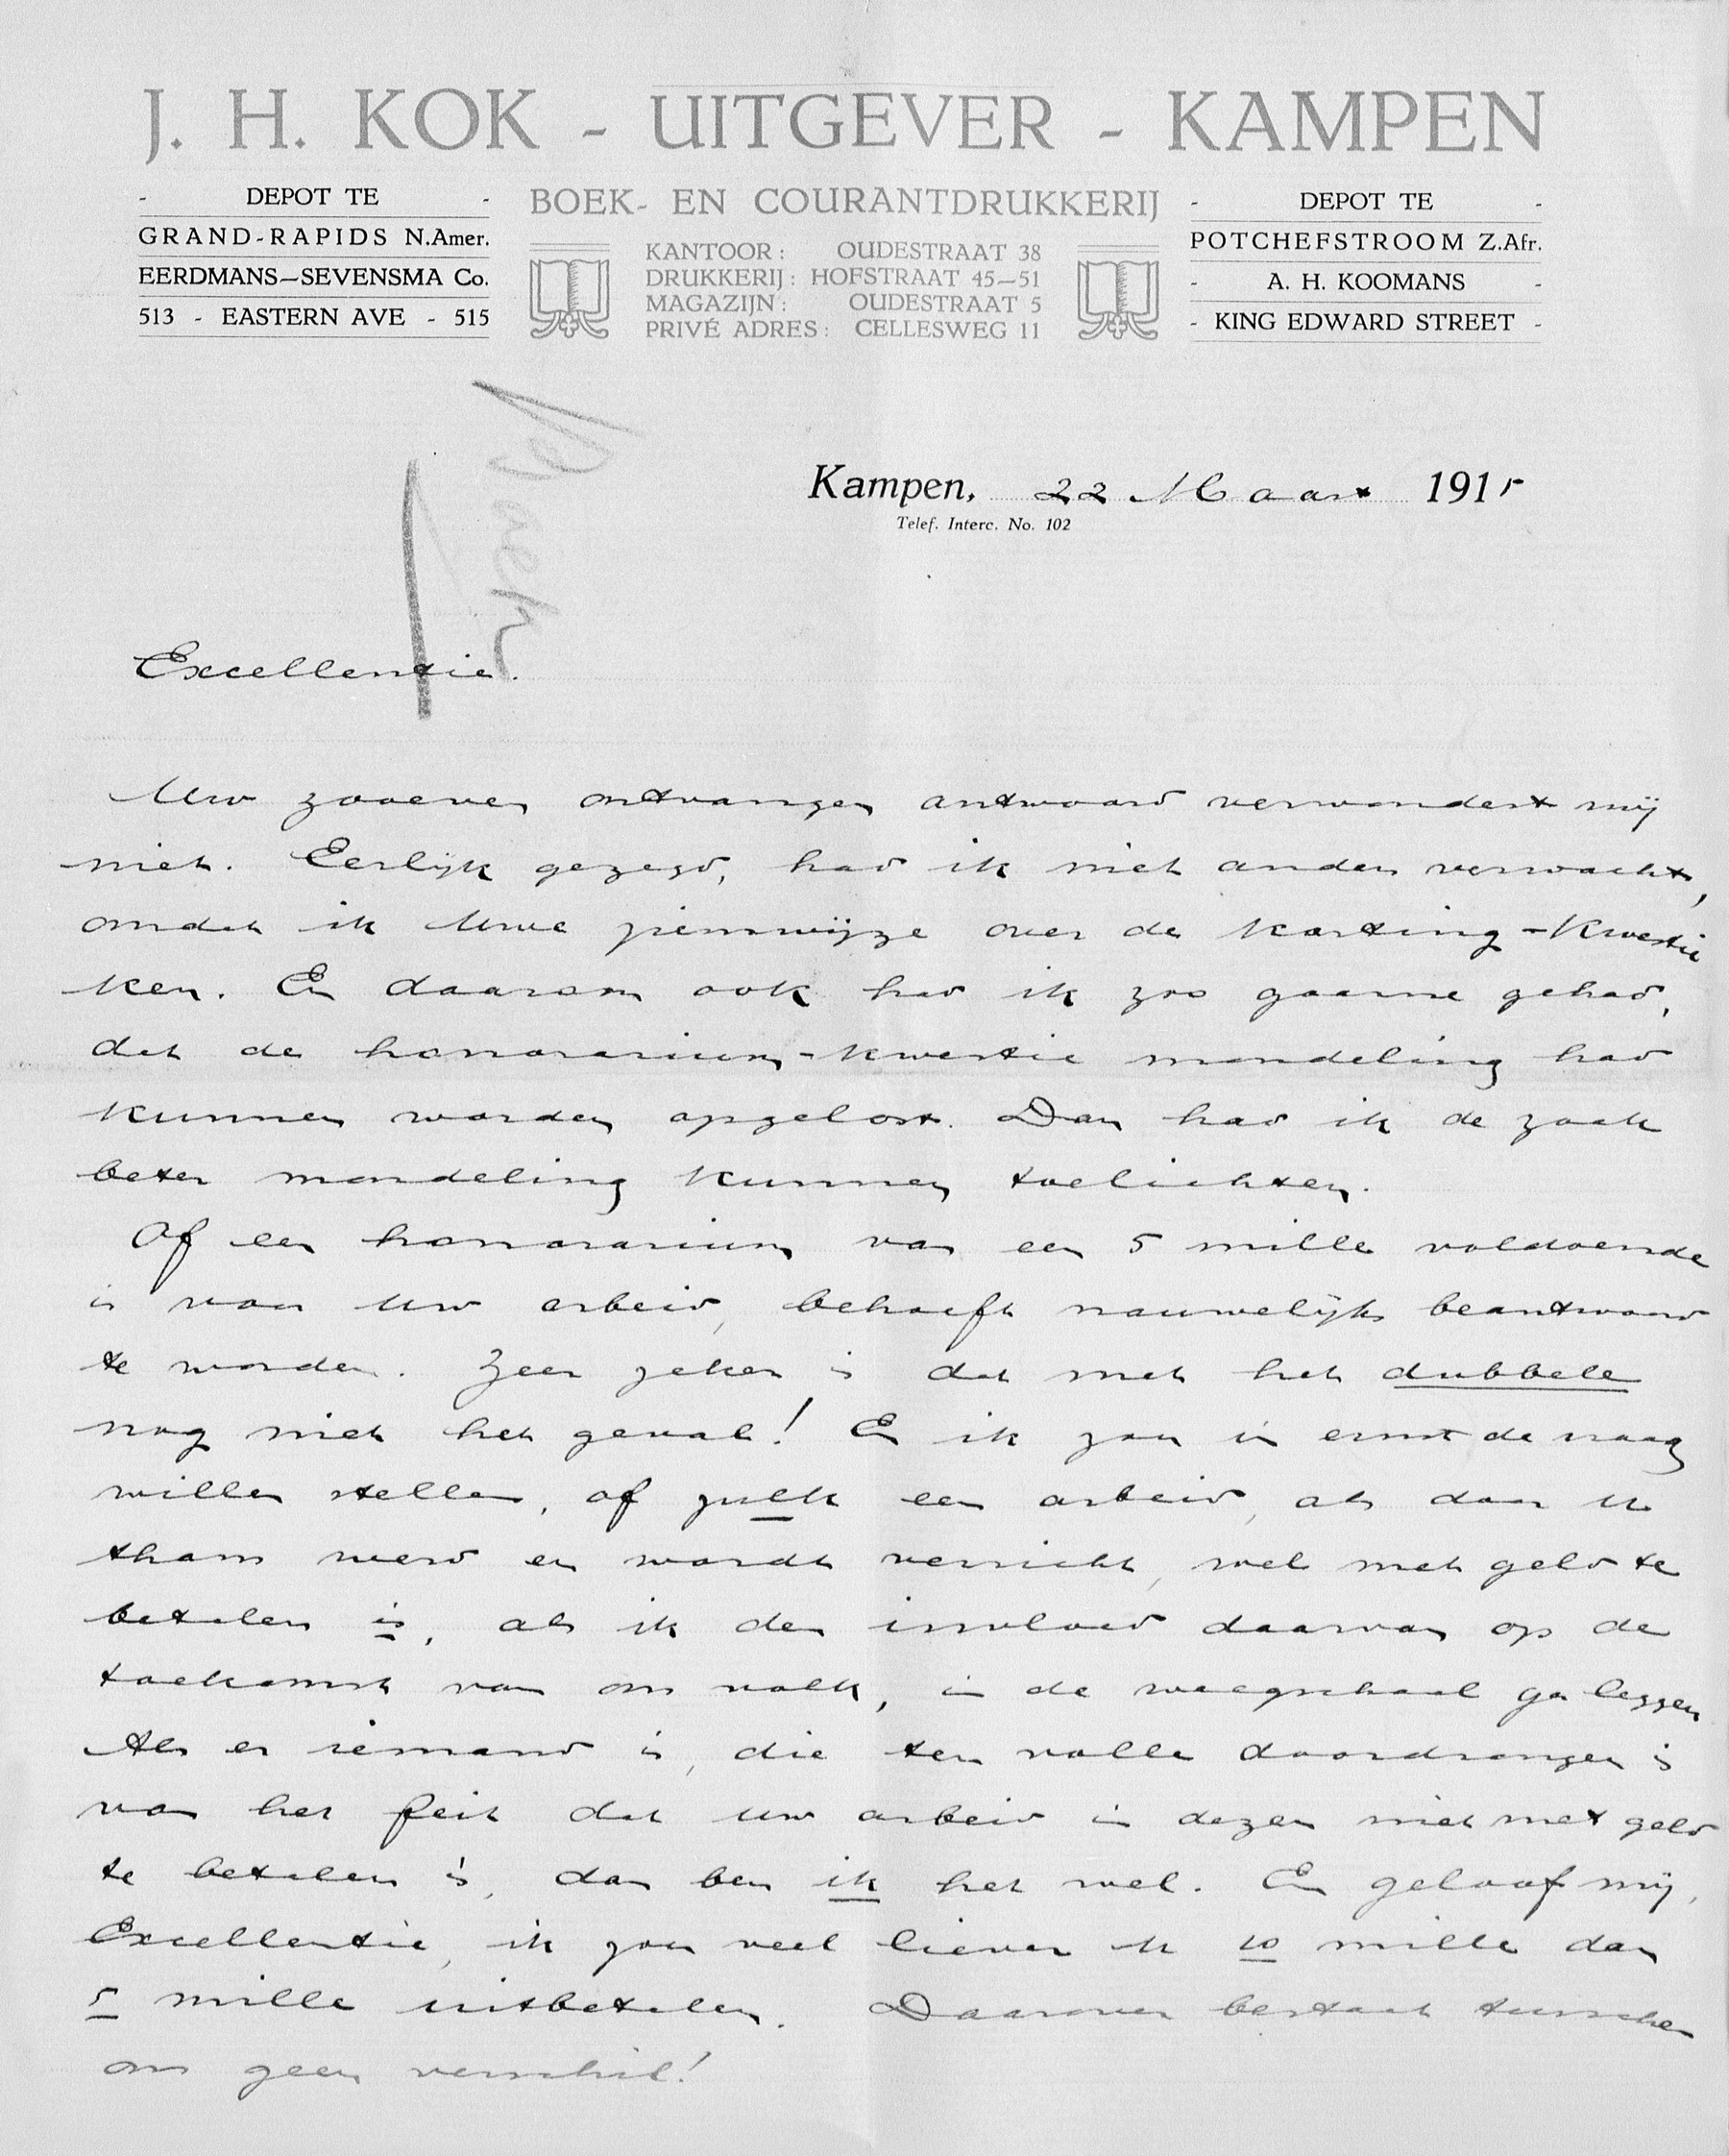 J. H. KOK - UITGEVER - KAMPEN
- DEPOT TE -
GRAND-RAPIDS N.Amer.
EERDMANS—SEVENSMA Co.
513 - EASTERN AVE - 515
BOEK- EN COURANTDRUKKERIJ
KANTOOR: OUDESTRAAT 38
DRUKKERIJ: HOFSTRAAT 45—51
MAGAZIJN: OUDESTRAAT 5
PRIVÉ ADRES: CELLESWEG 11
- DEPOT TE -
POTCHEFSTROOM Z.Afr.
- A. H. KOOMANS -
- KING EDWARD STREET -
Kampen, 22 Maart 1915
Telef. Interc. No. 102
Excellentie.
Uw zooeven ontvangen antwoord verwondert mij
niet. Eerlijk gezegd, had ik niet anders verwacht,
omdat ik Uwe zienswijze over de korting-kwestie
ken. En daarom ook had ik zoo gaarne gehad,
dat de honorarium-kwestie mondeling had
kunnen worden opgelost. Dan had ik de zaak
beter mondeling kunnen toelichten.
Of een honorarium van een 5 mille voldoende
is voor Uw arbeid, behoeft nauwelijks beantwoord
te worden. Zeer zeker is dat met het dubbele
nog niet het geval! En ik zou in ernst de vraag
willen stellen, of zulk een arbeid, als door U
thans werd en wordt verricht, wel met geld te
betalen is, als ik den invloed daarvan op de
toekomst van ons volk, in de weegschaal ga leggen
Als er iemand is, die ten volle doordrongen is
van het feit dat Uw arbeid in dezen niet met geld
te betalen is, dan ben ik het wel. En geloof mij,
Excellentie, ik zou veel liever U 10 mille dan
5 mille uitbetalen. Daarover bestaat tusschen
ons geen verschil!